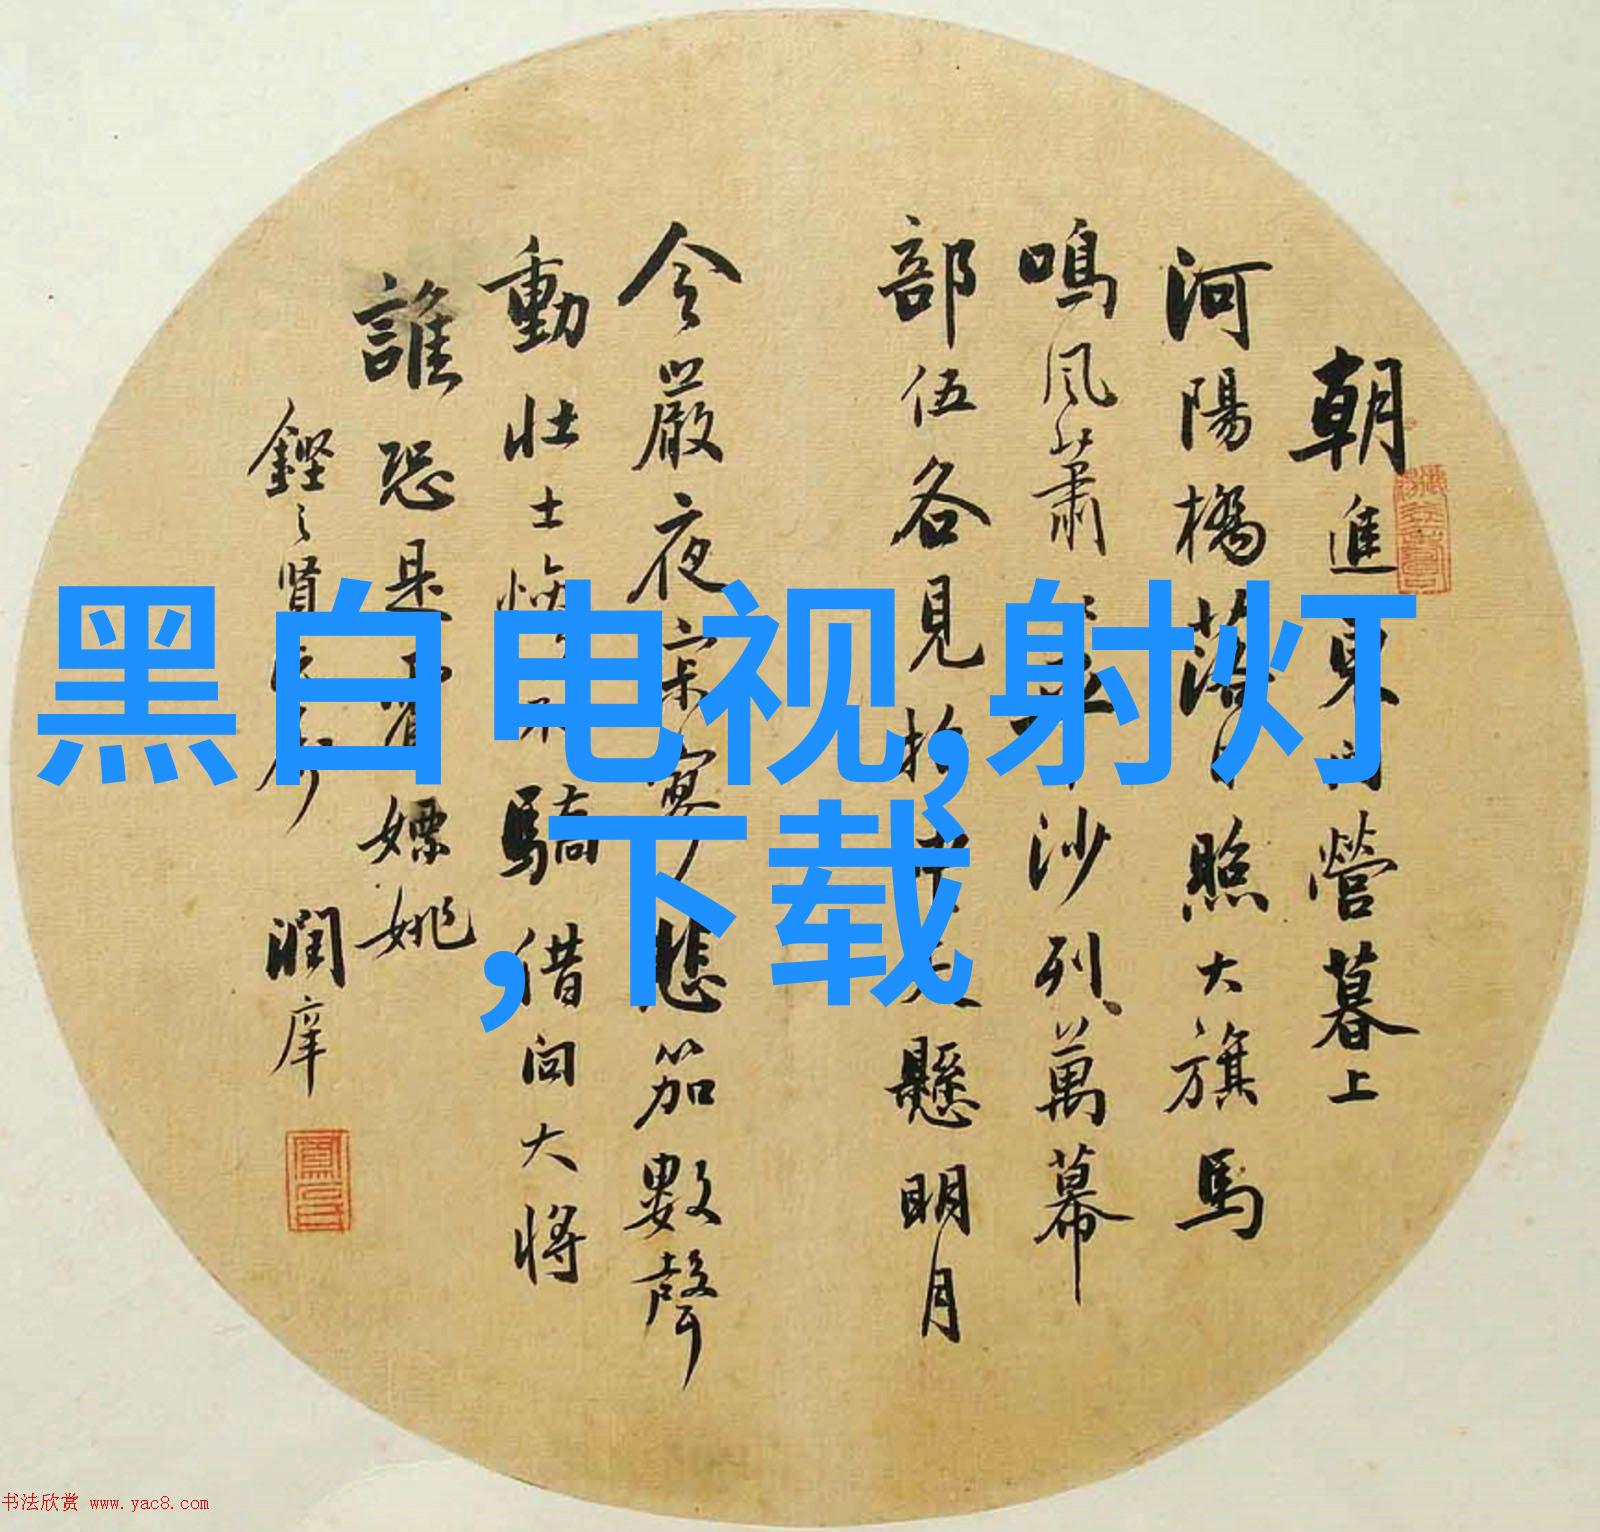 朝進東門營暮上
河陽橋落日照大旗馬
鳴風蕭平沙列萬幕
部伍各見招中天懸明月
令嚴夜寂寥悲笳數聲
動壯士慘不驕借問大將
誰恐是霍嫖姚
賢
潤庠
黑白电视,射灯
,下载
书法欣赏 www.yac8.com